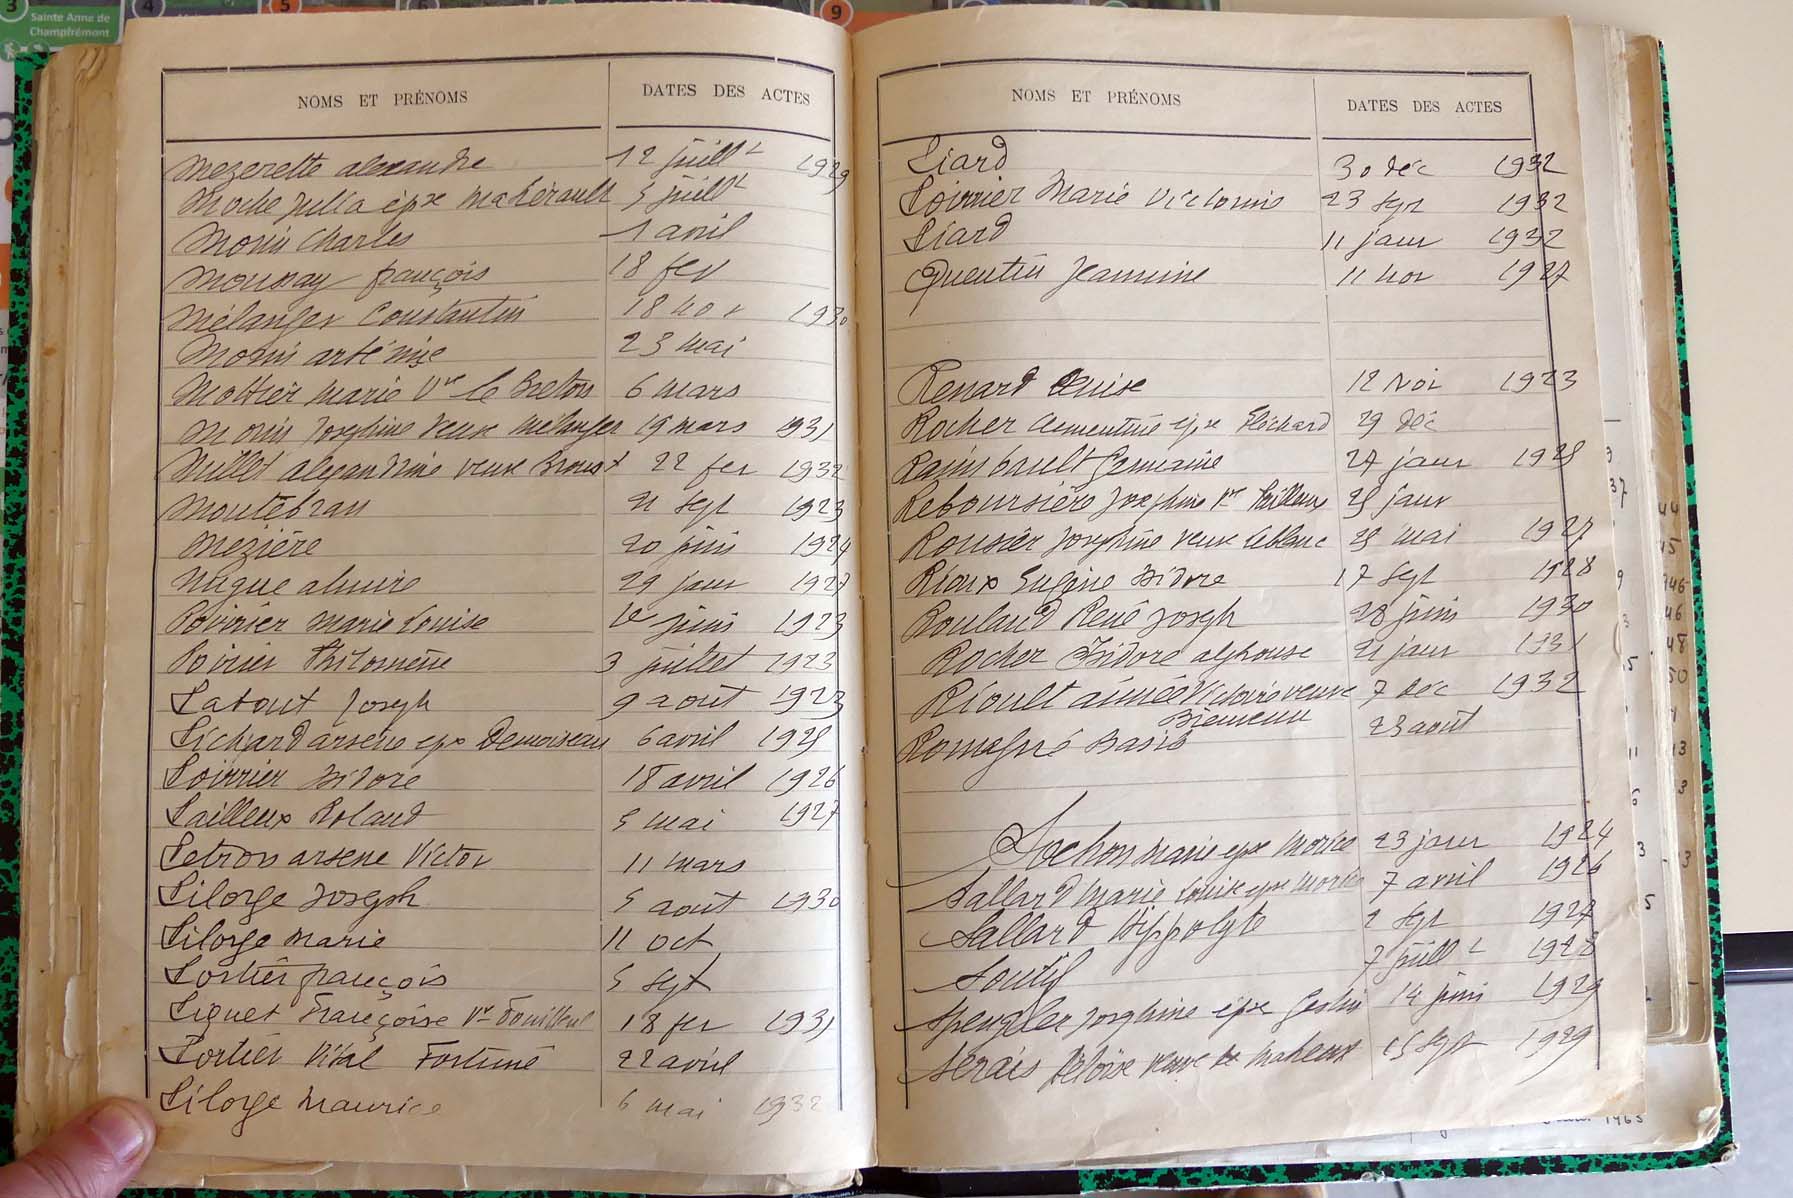 3
Sainte Anne de
Champfrémont
4
5
9
NOMS ET PRÉNOMS DATES DES ACTES
Mezerette alexandre 12 juillt 1929
Moche Julia épse Mahérault 5 juillt
Morin Charles 1 avril
Mounay françois 18 fev
Mélanger Constantin 18 nov 1930
Morin artémise 23 mai
Mottier Marie Vve le Breton 6 mars
Morin Josephine veuve Mélanger 19 mars 1931
Millet alexandrine veuve Broust 22 fev 1932
Montébran 21 sept 1923
Mezière 20 juin 1924
1927
Poirrier Marie Louise juin 1923
Poirier Philomène 3 juillet 1923
Patout Joseph 9 aout 1923
Pichard arsene epse Demoiseau 6 avril 1925
Poirrier Isidore 18 avril 1926
Pailleux Roland 5 mai 1927
Petron arsene Victor 11 mars
Pilorge Joseph 5 août 1930
Pilorge Marie 11 oct
Portier françois 5 sept
Piquet Françoise Vve 18 fev 1931
Portier Vital Fortuné 22 avril
Pilorge Maurice 6 mai 1932
NOMS ET PRÉNOMS DATES DES ACTES
Piard 30 déc 1932
Poirrier Marie Victorine 23 sept 1932
Piard 11 janv 1932
Quentin Jeannine 11 nov 1927
Renard Denise 12 Nov 1923
Rocher Clementine epse Fléchard 29 Déc
Raimbault Germaine 27 janv 1925
Reboursière Josephine Vve Pailleux 25 janv
Rousier Josephine veuve Leblanc 25 mai 1927
Rioux Eugène Isidore 17 Sept 1928
Rouland René Joseph 28 juin 1930
Rocher Isidore alphonse 21 janv 1931
Rioult aimée Victoire veuve 7 Déc 1932
Bienvenu
Romagné Basile 23 août
Sochon Marie epse Morice 23 janv 1924
Sallard Marie Louise epse Morice 7 avril 1926
Sallard Hippolyte 2 sept 1927
Soutif 7 juillt 1928
Spengler Josephine épse Geslin 14 juin 1929
Serais Héloïse veuve de Maheux 15 Sept 1929